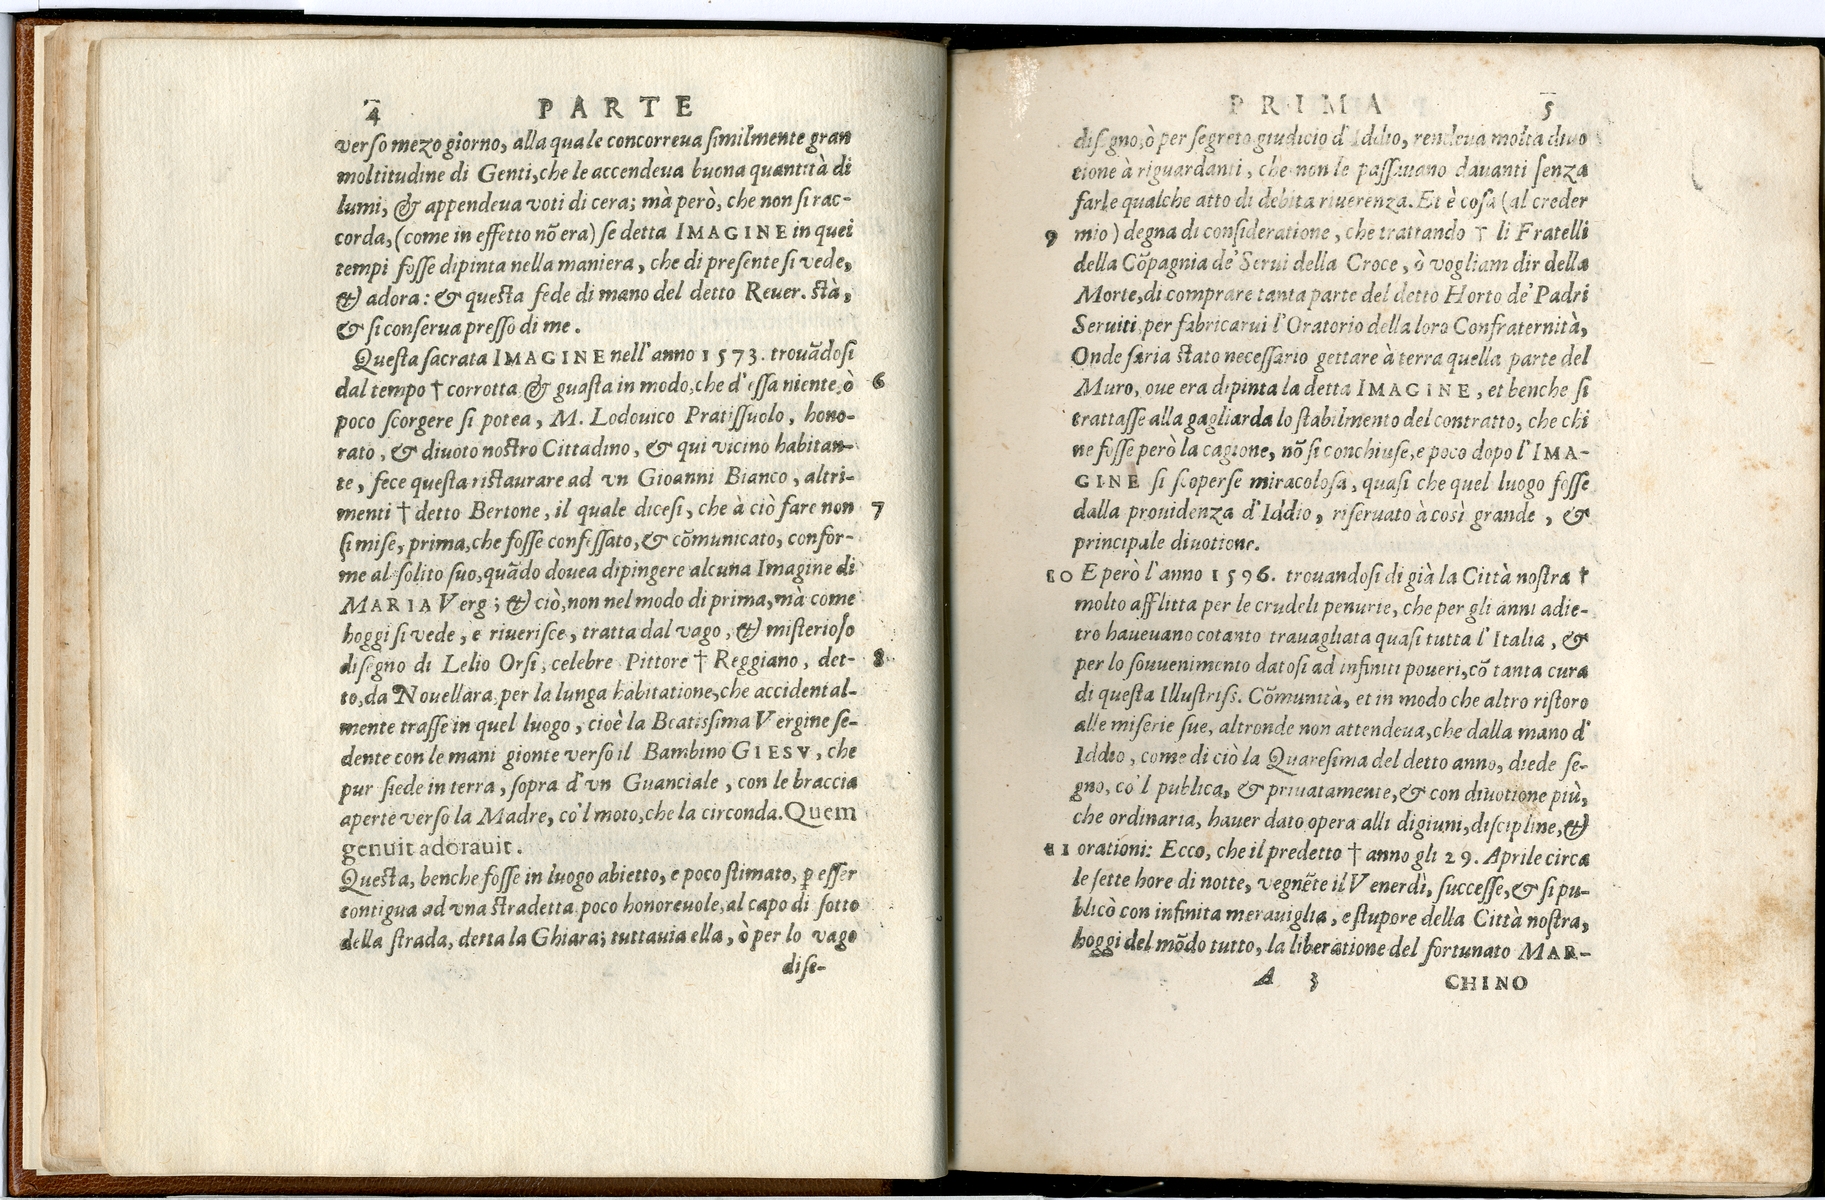 4 PARTE
verso mezo giorno, alla quale concorreua similmente gran
moltitudine di Genti, che le accendeua buona quantità di
lumi, & appendeua voti di cera; mà però, che non si rac-
corda, (come in effetto nõ era) se detta IMAGINE in quei
tempi fosse dipinta nella maniera, che di presente si vede,
& adora: & questa fede di mano del detto Reuer. stà,
& si conserua presso di me.
Questa sacrata IMAGINE nell'anno 1573. trouãdosi
dal tempo † corrotta & guasta in modo, che d'essa niente, ò 6
poco scorgere si potea, M. Lodouico Pratissuolo, hono-
rato, & diuoto nostro Cittadino, & qui vicino habitan-
te, fece questa ristaurare ad vn Gioanni Bianco, altri-
menti † detto Bertone, il quale dicesi, che à ciò fare non 7
si mise, prima, che fosse confessato, & cõmunicato, confor-
me al solito suo, quãdo douea dipingere alcuna Imagine di
MARIA Verg; & ciò, non nel modo di prima, mà come
hoggi si vede, e riuerisce, tratta dal vago, & misterioso
disegno di Lelio Orsi, celebre Pittore † Reggiano, det- 8
to, da Nouellara, per la lunga habitatione, che accidental-
mente trasse in quel luogo, cioè la Beatissima Vergine se-
dente con le mani gionte verso il Bambino GIESV, che
pur siede in terra, sopra d'vn Guanciale, con le braccia
aperte verso la Madre, co'l moto, che la circonda. Quem
genuit adorauit.
Questa, benche fosse in luogo abietto, e poco stimato, ꝑ esser
contigua ad vna stradetta poco honoreuole, al capo di sotto
della strada, detta la Ghiara; tuttauia ella, ò per lo vago
dise-
PRIMA 5
disegno, ò per segreto giudicio d'Iddio, rendeua molta diuo
tione à riguardanti, che non le passauano dauanti senza
farle qualche atto di debita riuerenza. Et è cosa (al creder
9 mio) degna di consideratione, che trattando † li Fratelli
della Cõpagnia de' Serui della Croce, ò vogliam dir della
Morte, di comprare tanta parte del detto Horto de' Padri
Seruiti per fabricarui l'Oratorio della loro Confraternità,
Onde saria stato necessario gettare à terra quella parte del
Muro, oue era dipinta la detta IMAGINE, et benche si
trattasse alla gagliarda lo stabilmento del contratto, che chi
ne fosse però la cagione, nõ si conchiuse, e poco dopo l'IMA-
GINE si scoperse miracolosa, quasi che quel luogo fosse
dalla prouidenza d'Iddio, riseruato à così grande, &
principale diuotione.
10 E però l'anno 1596. trouandosi di già la Città nostra †
molto afflitta per le crudeli penurie, che per gli anni adie-
tro haueuano cotanto trauagliata quasi tutta l'Italia, &
per lo souuenimento datosi ad infiniti poueri, cõ tanta cura
di questa Illustriss. Cõmunità, et in modo che altro ristoro
alle miserie sue, altronde non attendeua, che dalla mano d'
Iddio, come di ciò la Quaresima del detto anno, diede se-
gno, co'l publica, & priuatamente, & con diuotione più,
che ordinaria, hauer dato opera alli digiuni, discipline, &
11 orationi: Ecco, che il predetto † anno gli 29. Aprile circa
le sette hore di notte, vegnẽte il Venerdì, successe, & si pu-
blicò con infinita merauiglia, e stupore della Città nostra,
hoggi del mõdo tutto, la liberatione del fortunato MAR-
A 3 CHINO